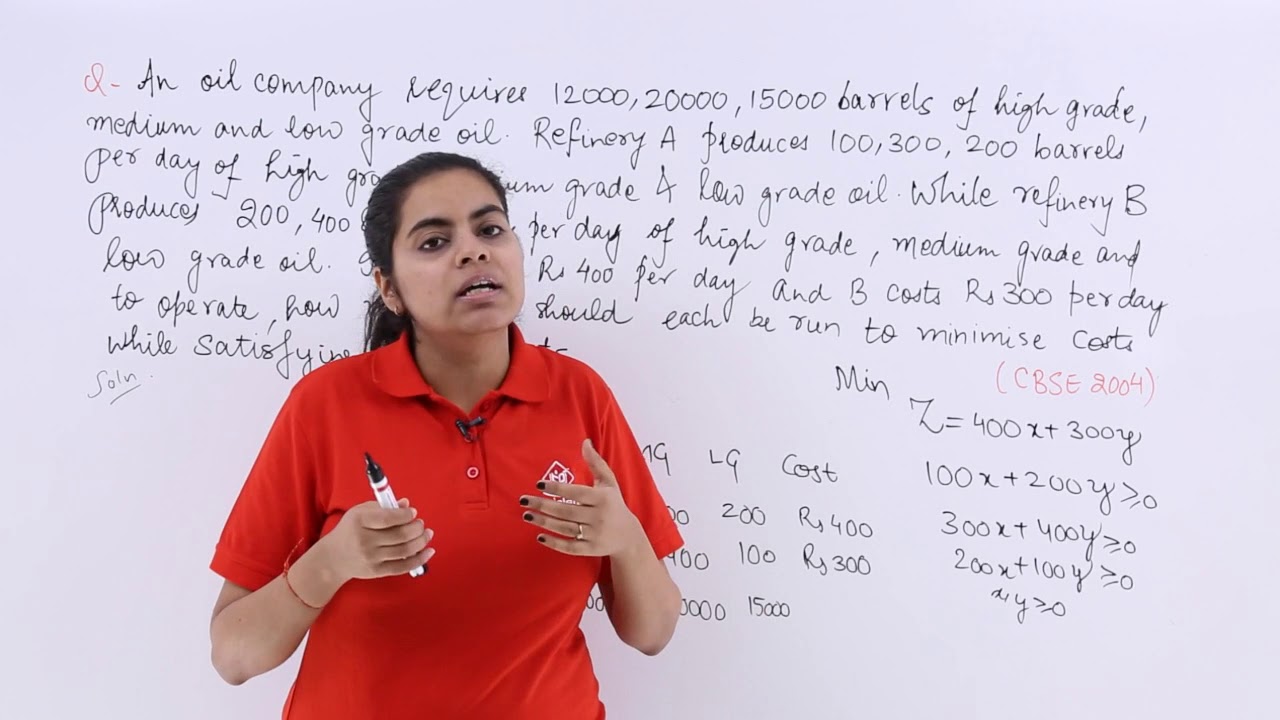 Q- An oil company requires 12000, 20000, 15000 barrels of high grade,
medium and low grade oil. Refinery A produces 100, 300, 200 barrels
per day of high grade & low grade oil. While refinery B
produces 200, 400 per day of high grade, medium grade and
low grade oil. Rs 400 per day and B costs Rs 300 per day
to operate, how should each be run to minimise costs
while
Soln.
(CBSE 2004)
Min
Z = 400x + 300y
LG Cost
100x + 200y ≥ 0
200 Rs 400
300x + 400y ≥ 0
100 Rs 300
200x + 100y ≥ 0
x, y ≥ 0
15000